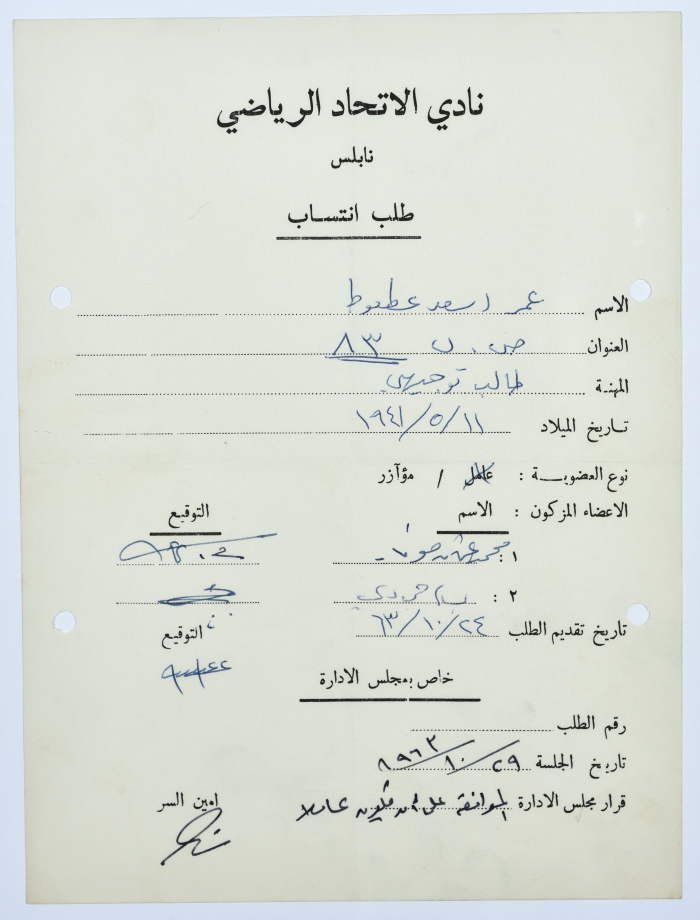 نادي الاتحاد الرياضي
نابلس
طلب انتساب
الاسم عمر اسعد عطعوط
العنوان ص . ب ٨٣
المهنة طالب توجيهي
تاريخ الميلاد ١٩٤١/٥/١١
نوع العضوية : عامل / مؤآزر
الاعضاء المزكون : الاسم التوقيع
١ : محمد
٢ :
تاريخ تقديم الطلب ٦٣/١٠/٢٤ التوقيع
خاص بمجلس الادارة
رقم الطلب
تاريخ الجلسة ١٩٦٣/١٠/٢٩
قرار مجلس الادارة الموافقة على ان يكون عاملا امين السر